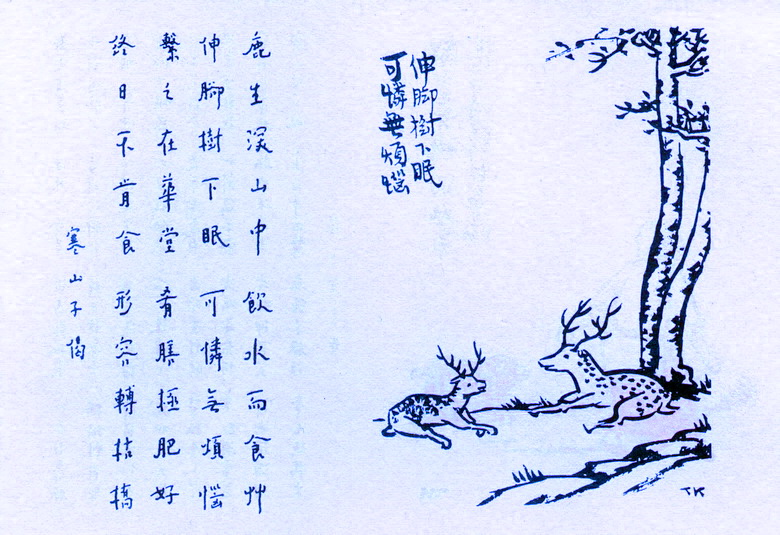 伸脚樹下眠
可憐無煩惱
TK
鹿生深山中 飲水而食艸
伸脚樹下眠 可憐無煩惱
繫之在華堂 肴膳極肥好
終日不肯食 形容轉枯槁
寒山子偈